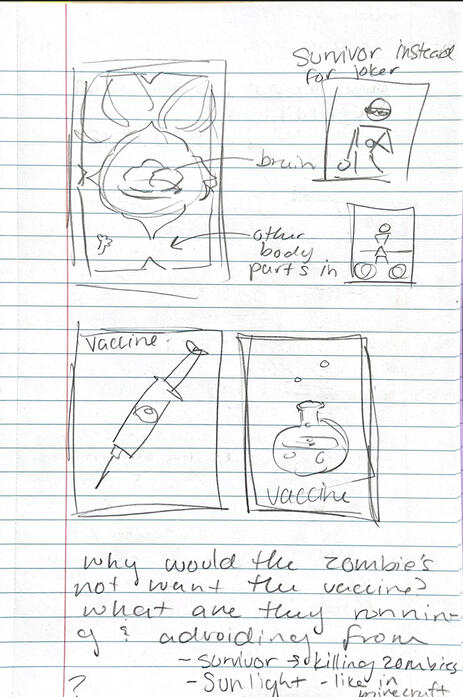 Survivor instead
for joker
brain
other
body
parts in
vaccine
vaccine
why would the zombie's
not want the vaccine?
what are they runnin-
g & advoiding from
- survivor → killing zombies
- Sunlight - like in
minecraft
?